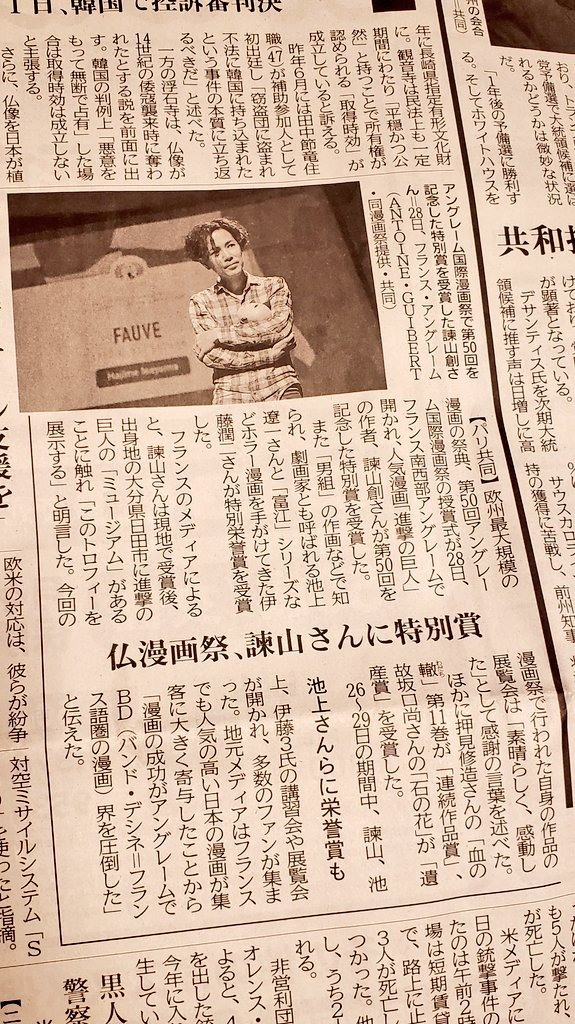 1日、韓国で控訴審判決
年に長崎県指定有形文化財
に。観音寺は民法上も一定
期間にわたり「平穏かつ公
然」と持つことで所有権が
認められる「取得時効」が
成立していると訴える。
昨年6月には田中節竜住
職(47)が補助参加人として
初出廷し「窃盗団に盗まれ
不法に韓国に持ち込まれた
という事件の本質に立ち返
るべきだ」と述べた。
一方の浮石寺は、仏像が
14世紀の倭寇襲来時に奪わ
れたとする説を前面に出
す。韓国の判例上「悪意を
もって無断で占有」した場
合は取得時効は成立しない
と主張する。
さらに、仏像を日本が植
州の会合
=共同)
おり、トランプ
党予備選で大統領候補に選ば
れるかどうかは微妙な状況
だ。
「1年後の予備選に勝利す
る。そしてホワイトハウスを
共和
けており、
が顕著となっている。
デサンティス氏を次期大統
領候補に推す声は日増しに高
サウスカロラ
持の獲得に苦戦し、
前州知事
アングレーム国際漫画祭で第50回を
記念した特別賞を受賞した諫山創さ
ん=28日、フランス・アングレーム
(ANTOINE・GUIBERT
・同漫画祭提供・共同)
FAUVE
Hajime Isayama
仏漫画祭、諫山さんに特別賞
池上さんらに栄誉賞も
【パリ共同】欧州最大規模の
漫画の祭典、第50回アングレー
ム国際漫画祭の授賞式が28日、
フランス南西部アングレームで
開かれ、人気漫画「進撃の巨人」
の作者、諫山創さんが第50回を
記念した特別賞を受賞した。
また「男組」の作画などで知
られ、劇画家とも呼ばれる池上
遼一さんと「富江」シリーズな
どホラー漫画を手がけてきた伊
藤潤二さんが特別栄誉賞を受賞
した。
フランスのメディアによる
と、諫山さんは現地で受賞後、
出身地の大分県日田市に進撃の
巨人の「ミュージアム」がある
ことに触れ「このトロフィーを
展示する」と明言した。今回の
漫画祭で行われた自身の作品の
展覧会は「素晴らしく、感動し
た」として感謝の言葉を述べた。
ほかに押見修造さんの「血の
轍」第11巻が「連続作品賞」、
わだち
故坂口尚さんの「石の花」が「遺
産賞」を受賞した。
26~29日の期間中、諫山、池
上、伊藤3氏の講習会や展覧会
が開かれ、多数のファンが集ま
った。地元メディアはフランス
でも人気の高い日本の漫画が集
客に大きく寄与したことから
「漫画の成功がアングレームで
BD(バンド・デシネ=フラン
ス語圏の漫画)界を圧倒した」
と伝えた。
支援を
欧米の対応は、彼らが紛争
対空ミサイルシステム「S
を使った」と指摘。
も5人が撃たれ、
が死亡した。
米メディアに
日の銃撃事件の
たのは午前2時
場は短期賃貸
で、路上に止
3人が死亡し
つかった。他
し、うち2
れる。
非営利団
オレンス・
よると、4
を出した銃
今年に入
生してい
黒人
警察